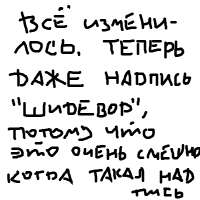 ВСЁ ИЗМЕНИ-
ЛОСЬ. ТЕПЕРЬ
ДАЖЕ НАДПИСЬ
"ШИДЕВОР",
ПОТОМУ ЧТО
ЭТО ОЧЕНЬ СМЕШНО
КОГДА ТАКАЯ НАД
ПИСЬ